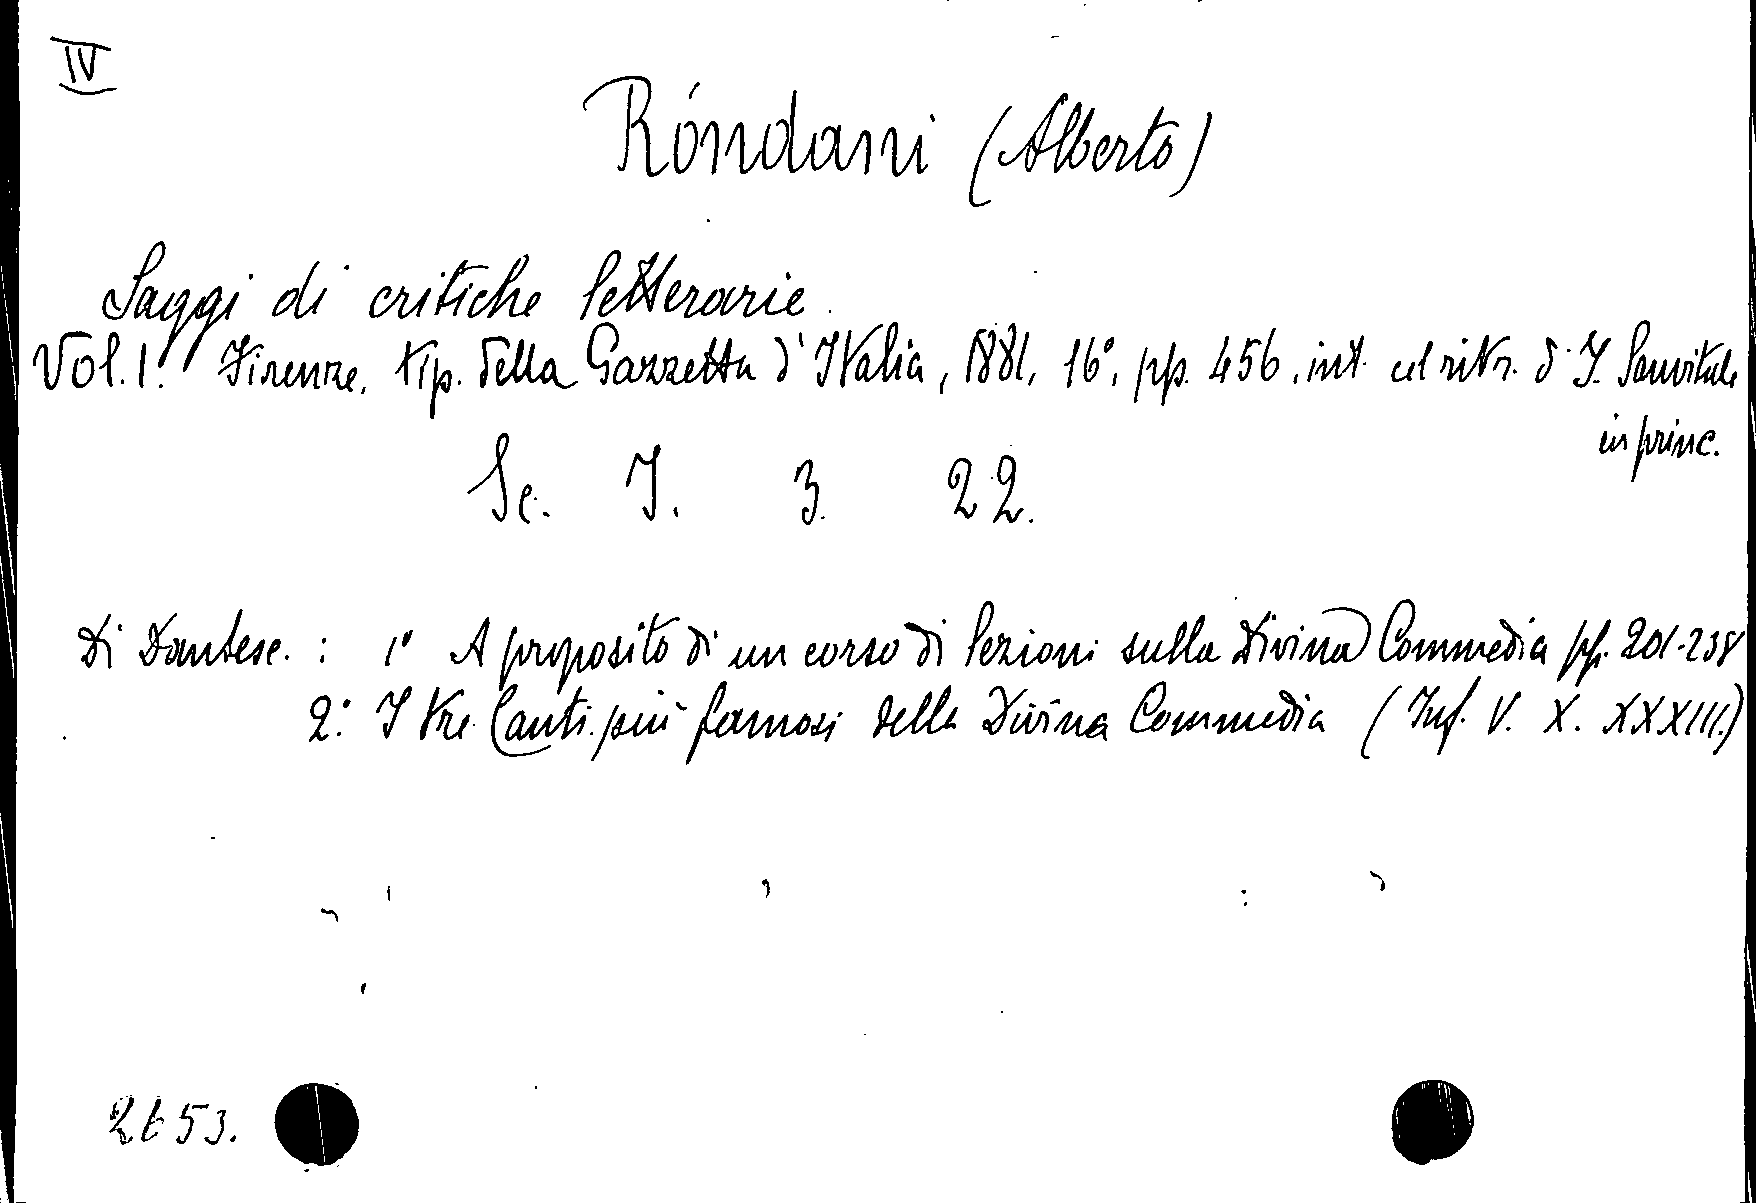 IV
Róndani (Alberto)
Saggi di critiche letterarie.
Vol. 1.° Firenze, tip. della Gazzetta d'Italia, 1881, 16°, pp. 456, int. col ritr. d J. Sanvitale
in princ.
Sc. I. 3. 22.
Di Dantesc. : 1° A proposito di un corso di lezioni sulla Divina Commedia pp. 201-238
2° I tre Canti più famosi della Divina Commedia (Inf. V. X. XXXIII.)
2653.